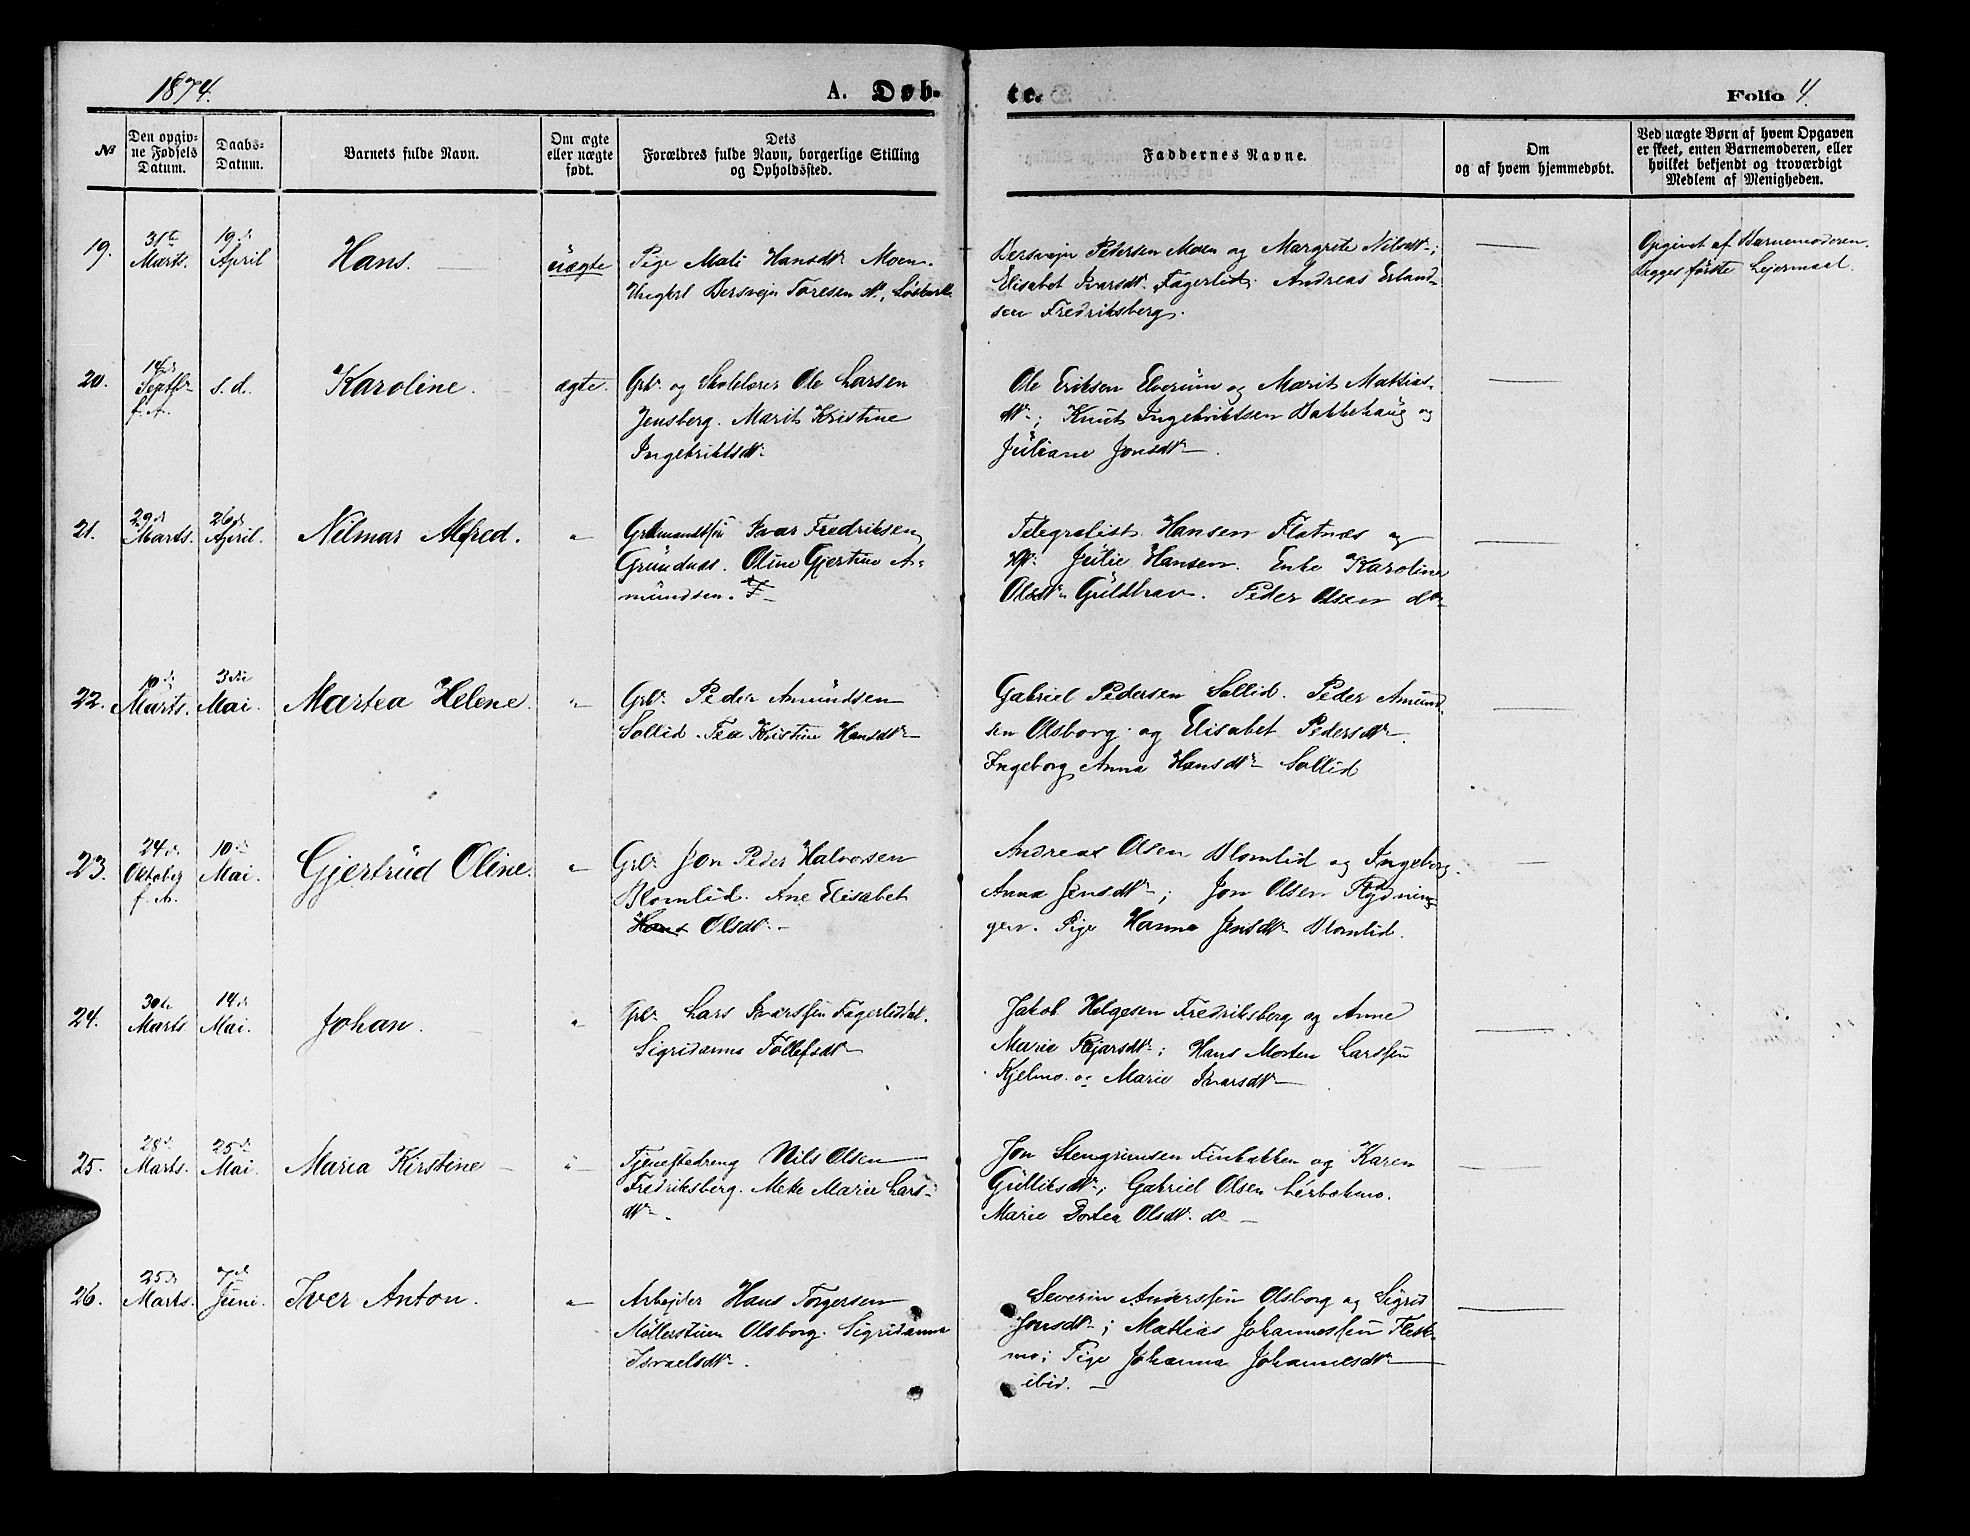 1874.
A. Døb-
te.
Folio 4.
№
Den opgiv-
ne Fødsels
Datum.
Daabs-
Datum.
Barnets fulde Navn.
Om ægte
eller uægte
født.
Dets
Forældres fulde Navn, borgerlige Stilling
og Opholdssted.
Faddernes Navne.
Om
og af hvem hjemmedøbt.
Ved uægte Børn af hvem Opgaven
er skeet, enten Barnemoderen, eller
hvilket bekjendt og troværdigt
Medlem af Menigheden.
19.
31te
Marts.
19de
April
Hans.
uægte
Pige Mali Hansdtr. Moen.
Ungkrl Bersvejn Toresen
Bersvejn Pedersen Moen og Margrete Nilsdtr;
Elisabet Ivarsdtr. Fagerlid; Andreas Erland-
sen Fredriksberg.
Opgivet af Barnemoderen.
Begges første Lejermaal.
20.
14de
Septbr
f. A.
s.d.
Karoline.
ægte.
Grb. og Skolelærer Ole Larsen
Jensberg. Marit Kristine
Ingebriktsdtr.
Ole Eriksen Elverum og Marit Mattias-
dtr; Knut Ingebriktsen Bakkehaug og
Juliane Jonsdtr.
21.
29de
Marts.
26de
April.
Nilmar Alfred.
"
Ivar Fredriksen
Grundnæs. Oline Gjertine A-
mundsen.
Telegrafist Hansen Flatnæs og
Julie Hansen. Enke Karoline
Olsdtr. Guldhav. Peder Olsen do
22.
10de
Marts.
3die
Mai.
Martea Helene.
"
Grb. Peder Amundsen
Sollid. Tea Kristine Hansdtr
Gabriel Pedersen Sollid. Peder Amund-
sen Olsborg og Elisabet Pedersdtr.
Ingeborg Anna Hansdtr Sollid
23.
24de
Oktober
f. A.
10de
Mai.
Gjertrud Oline.
"
Grb. Jon Peder Halvorsen
Blomlid. Ane Elisabet
Hans Olsdtr.
Andreas Olsen Blomlid og Ingeborg
Anna Jensdtr; Jon Olsen Rydnin-
gen. Pige Hanna Jensdtr Blomlid.
24.
30te
Marts
14de
Mai.
Johan.
"
Grb. Lars Ivarssen Fagerliddal.
Sigridanna Tollefsdtr
Jakob Helgesen Fredriksberg og Anne
Marie Pejarsdtr; Hans Morten Larssen
Kjelmo og Marie Ivarsdtr
25.
28de
Marts.
25de
Mai.
Maria Kirstine
"
Tjenestedreng Nils Olsen
Fredriksberg. Mette Marie Lars-
dtr.
Jon Stengrimsen Finbakken og Karen
Gulliksdtr; Gabriel Olsen
Marie Dortea Olsdtr. do
26.
25de
Marts.
7de
Juni.
Iver Anton.
"
Arbejder Hans Torgersen
Møllerstuen Olsborg. Sigridanna
Israelsdtr.
Severin Anderssen Olsborg og Sigrid
Jonsdtr; Mattias Johannessen Flesk-
mo; Pige Johanna Johannesdtr
ibid.